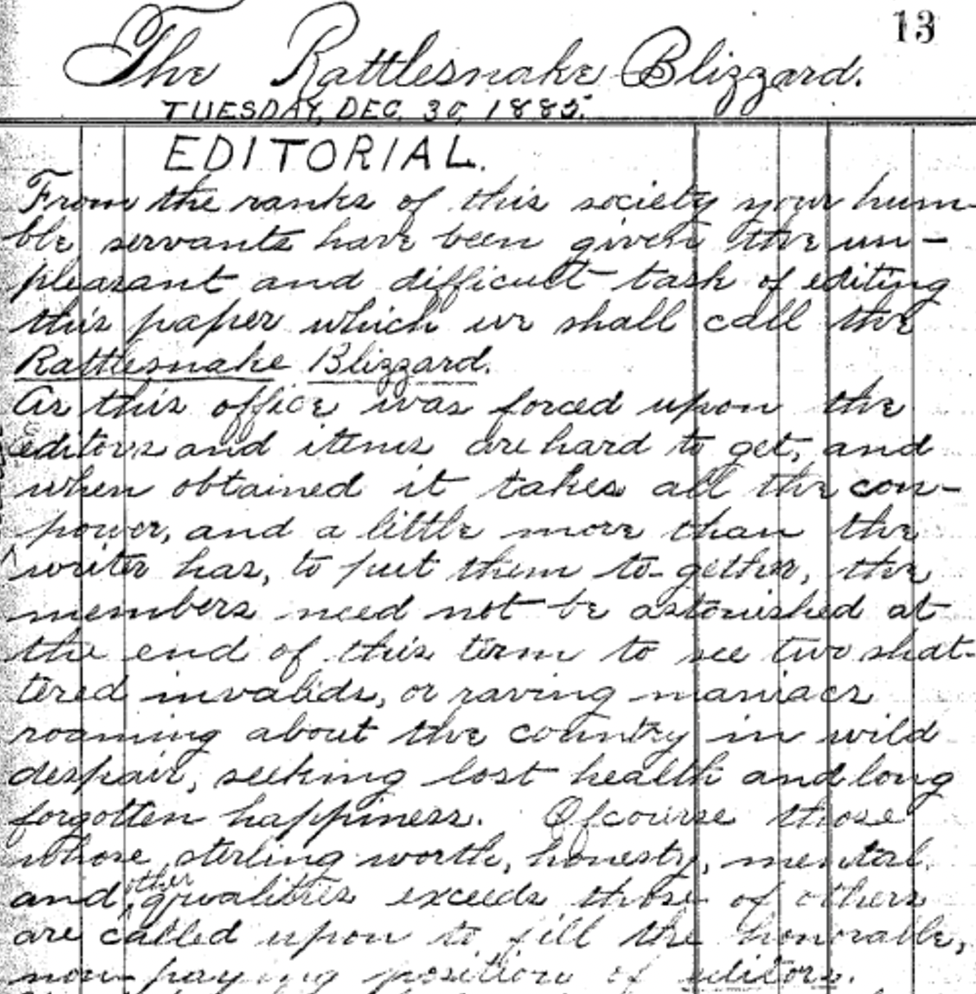 13
The Rattlesnake Blizzard.
TUESDAY, DEC. 30, 1885.
EDITORIAL.
From the ranks of this society your hum-
ble servants have been given the un-
pleasant and difficult task of editing
this paper which we shall call the
Rattlesnake Blizzard.
As this office was forced upon the
editors and items are hard to get, and
when obtained it takes all the con-
power, and a little more than the
writer has, to put them to-gether, the
members need not be astonished at
the end of this term to see two shat-
tered invalids, or raving maniacs
roaming about the country in wild
despair, seeking lost health and long
forgotten happiness. Ofcourse those
whose sterling worth, honesty, mental
and other qualities exceeds those of others
are called upon to fill the honorable,
non-paying position of editors.